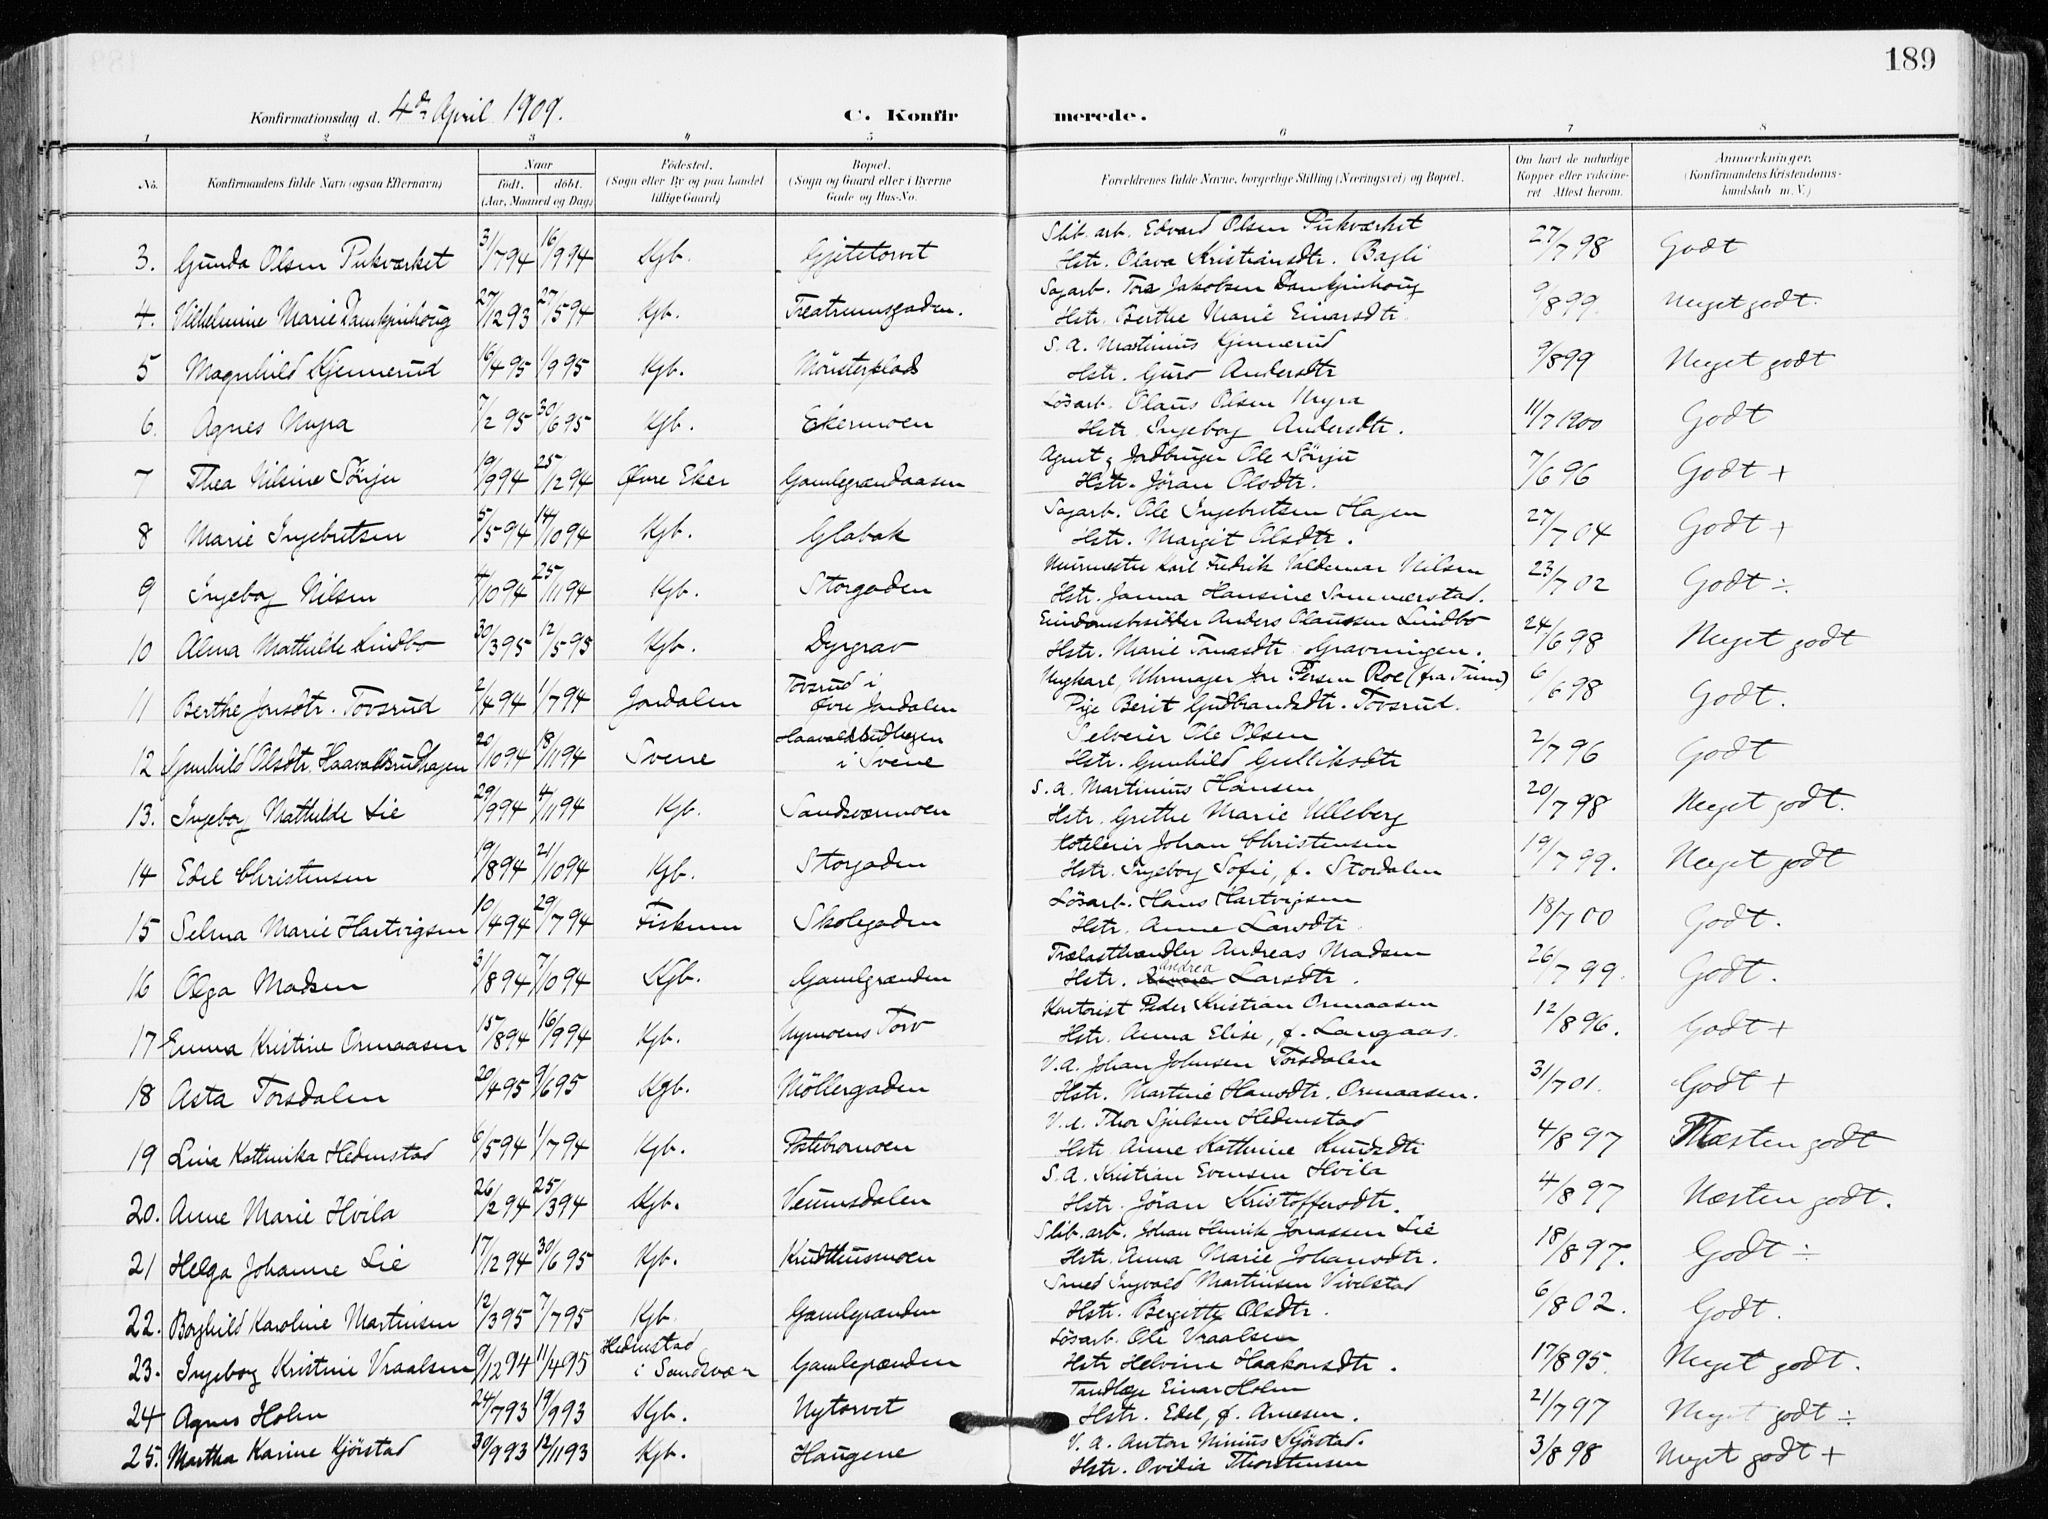 189
Konfirmationsdag d. 4de April 1909. C. Konfirmerede.
1 2 3 4 5 6 7 8
No. Konfirmandens fulde Navn (ogsaa Efternavn) Naar födt. döbt. (Aar, Maaned og Dag) Födested. (Sogn eller By og paa Landet tillige Gaard) Bopæl. (Sogn og Gaard eller i Byerne Gade og Hus-No. Forældrenes fulde Navne, borgerlige Stilling (Næringsvei) og Bopæl. Om havt de naturlige Kopper eller vaccineret. Attest herom. Anmerkninger. (Konfirmandens Kristendomskundskab m. V.)
3. Gunda Olsen Pukværket 31/7 94 16/9 94 Kgb. Gjetetorvet Slib. arb. Edvard Olsen Pukværket Hstr. Olava Kristiansdtr. Bagli 27/7 98 Godt
4. Vilhelmine Marie Damkjinhoug 27/12 93 27/5 94 Kgb. Treatrumsgaden. Sagarb. Tore Jakobsen Damkjinhoug Hstr. Berthe Marie Einarsdtr. 9/8 99. Meget godt.
5 Magnhild Kjennerud 16/4 95 1/9 95 Kgb. Mönsterplads S. A. Martinius Kjennerud Hstr. Guro Andersdtr 9/8 99 Meget godt
6. Agnes Myra 7/2 95 30/6 95 Kgb. Ekermoen Lösarb. Olaus Olsen Myra Hstr. Ingeborg Andersdtr. 11/7 1900 Godt
7 Thea Nilsine Sörsju 19/9 94 25/12 94 Øvre Eker Gamlegrændaasen Agent & Jordbruger Ole Sörsju Hstr. Jöran Olsdtr. 7/6 96 Godt +
8 Marie Ingebretsen 5/5 94 14/10 94 Kgb. Glabak Sagarb. Ole Ingebretsen Hagen Hstr. Margit Olsdtr. 27/7 04 Godt +
9 Ingeborg Nilsen 4/10 94 25/11 94 Kgb. Storgaden Murmester Karl Fredrik Valdemar Nilsen Hstr. Janna Hansine Sommerstad. 23/7 02 Godt ÷
10 Alma Mathilde Lindbo 30/3 95 12/5 95 Kgb. Dyrgrav Eiendomsbesidder Anders Olaussen Lindbo Hstr. Marie Tomasdtr Gravningen. 24/6 98 Meget godt
11 Berthe Jonsdtr. Tovsrud 2/4 94 1/7 94 Jondalen Tovsrud i Øvre Jondalen Ungkarl, Uhrmager Persen Roe (fra Tinn) Pige Berit Gudbrandsdtr. Tovsrud. 6/6 98 Godt.
12 Gunhild Olsdtr. Haavalsrudhagen 20/10 94 18/11 94 Svene Haavalsrudhagen i Svene Selveier Ole Olsen Hstr. Gunhild Gulliksdtr 2/7 96 Godt
13. Ingeborg Mathilde Lie 29/9 94 4/11 94 Kgb. Sandsværmoen S. a. Martinius Hansen Hstr. Grethe Marie Ulleberg 20/7 98 Meget godt.
14 Edel Christensen 19/8 94 21/10 94 Kgb. Storgaden Hoteleier Johan Christensen Hstr. Ingeborg Sofie, f. Stordalen 19/7 99. Meget godt
15 Selma Marie Hartvigsen 10/4 94 29/7 94 Fiskum Skolegaden Lösarb. Hans Hartvigsen Hstr. Anne Larsdtr 18/7 00 Godt.
16 Olga Madsen 3/8 94 7/10 94 Kgb. Gamlegrænden Trælasthandler Andreas Madsen Hstr. Andrea Larsdtr. 26/7 99. Godt.
17 Emma Kristine Ormaasen 15/8 94 16/9 94 Kgb. Nymoens Torv Kartorist Peder Kristian Ormaasen Hstr. Anna Elise, f. Langaas. 12/8 96. Godt +
18 Asta Torsdalen 20/4 95 9/6 95 Kgb. Möllergaden V. A. Johan Johnsen Torsdalen Hstr. Martine Hansdtr. Ormaasen. 31/7 01. Godt +
19 Lina Kathinka Hedenstad 6/5 94 1/7 94 Kgb. Postebromoen V. A. Thor Sjulsen Hedenstad Hstr Anne Kathrine Knudsdtr 4/8 97 Næsten godt
20. Anne Marie Hvila 26/2 94 25/3 94 Kgb. Veumsdalen S. A. Kristian Evensen Hvila Hstr. Jöran Kristoffersdtr. 4/8 97 Næsten godt.
21 Helga Johanne Lie 17/12 94 30/6 95 Kgb. Krudthusmoen Slib. arb. Johan Henrik Jonassen Lie Hstr. Anna Marie Johansdtr. 18/8 97. Godt ÷
22. Borghild Karoline Martinsen 12/3 95 7/7 95 Kgb. Gamlegrænden Smed Ingvald Martinsen Vivelstad Hstr. Bergitte Olsdtr. 6/8 02. Godt.
23. Ingeborg Kristine Vraalsen 9/12 94 11/4 95 Hedenstad i Sandsvær Gamlegrænden Lösarb. Ole Vraalsen Hstr Helvine Haakonsdtr. 17/8 95. Meget godt.
24 Agnes Holm 24/7 93 19/9 93 Kgb. Nytorvet Tandlæge Einar Holm Hstr. Edel, f. Arnesen. 21/7 97 Meget godt ÷
25. Martha Karine Kjörstad 30/9 93 12/11 93 Kgb. Haugene V. A. Anton Ninius Kjörstad. Hstr. Ovilia Thorstensen 3/8 98 Meget godt +